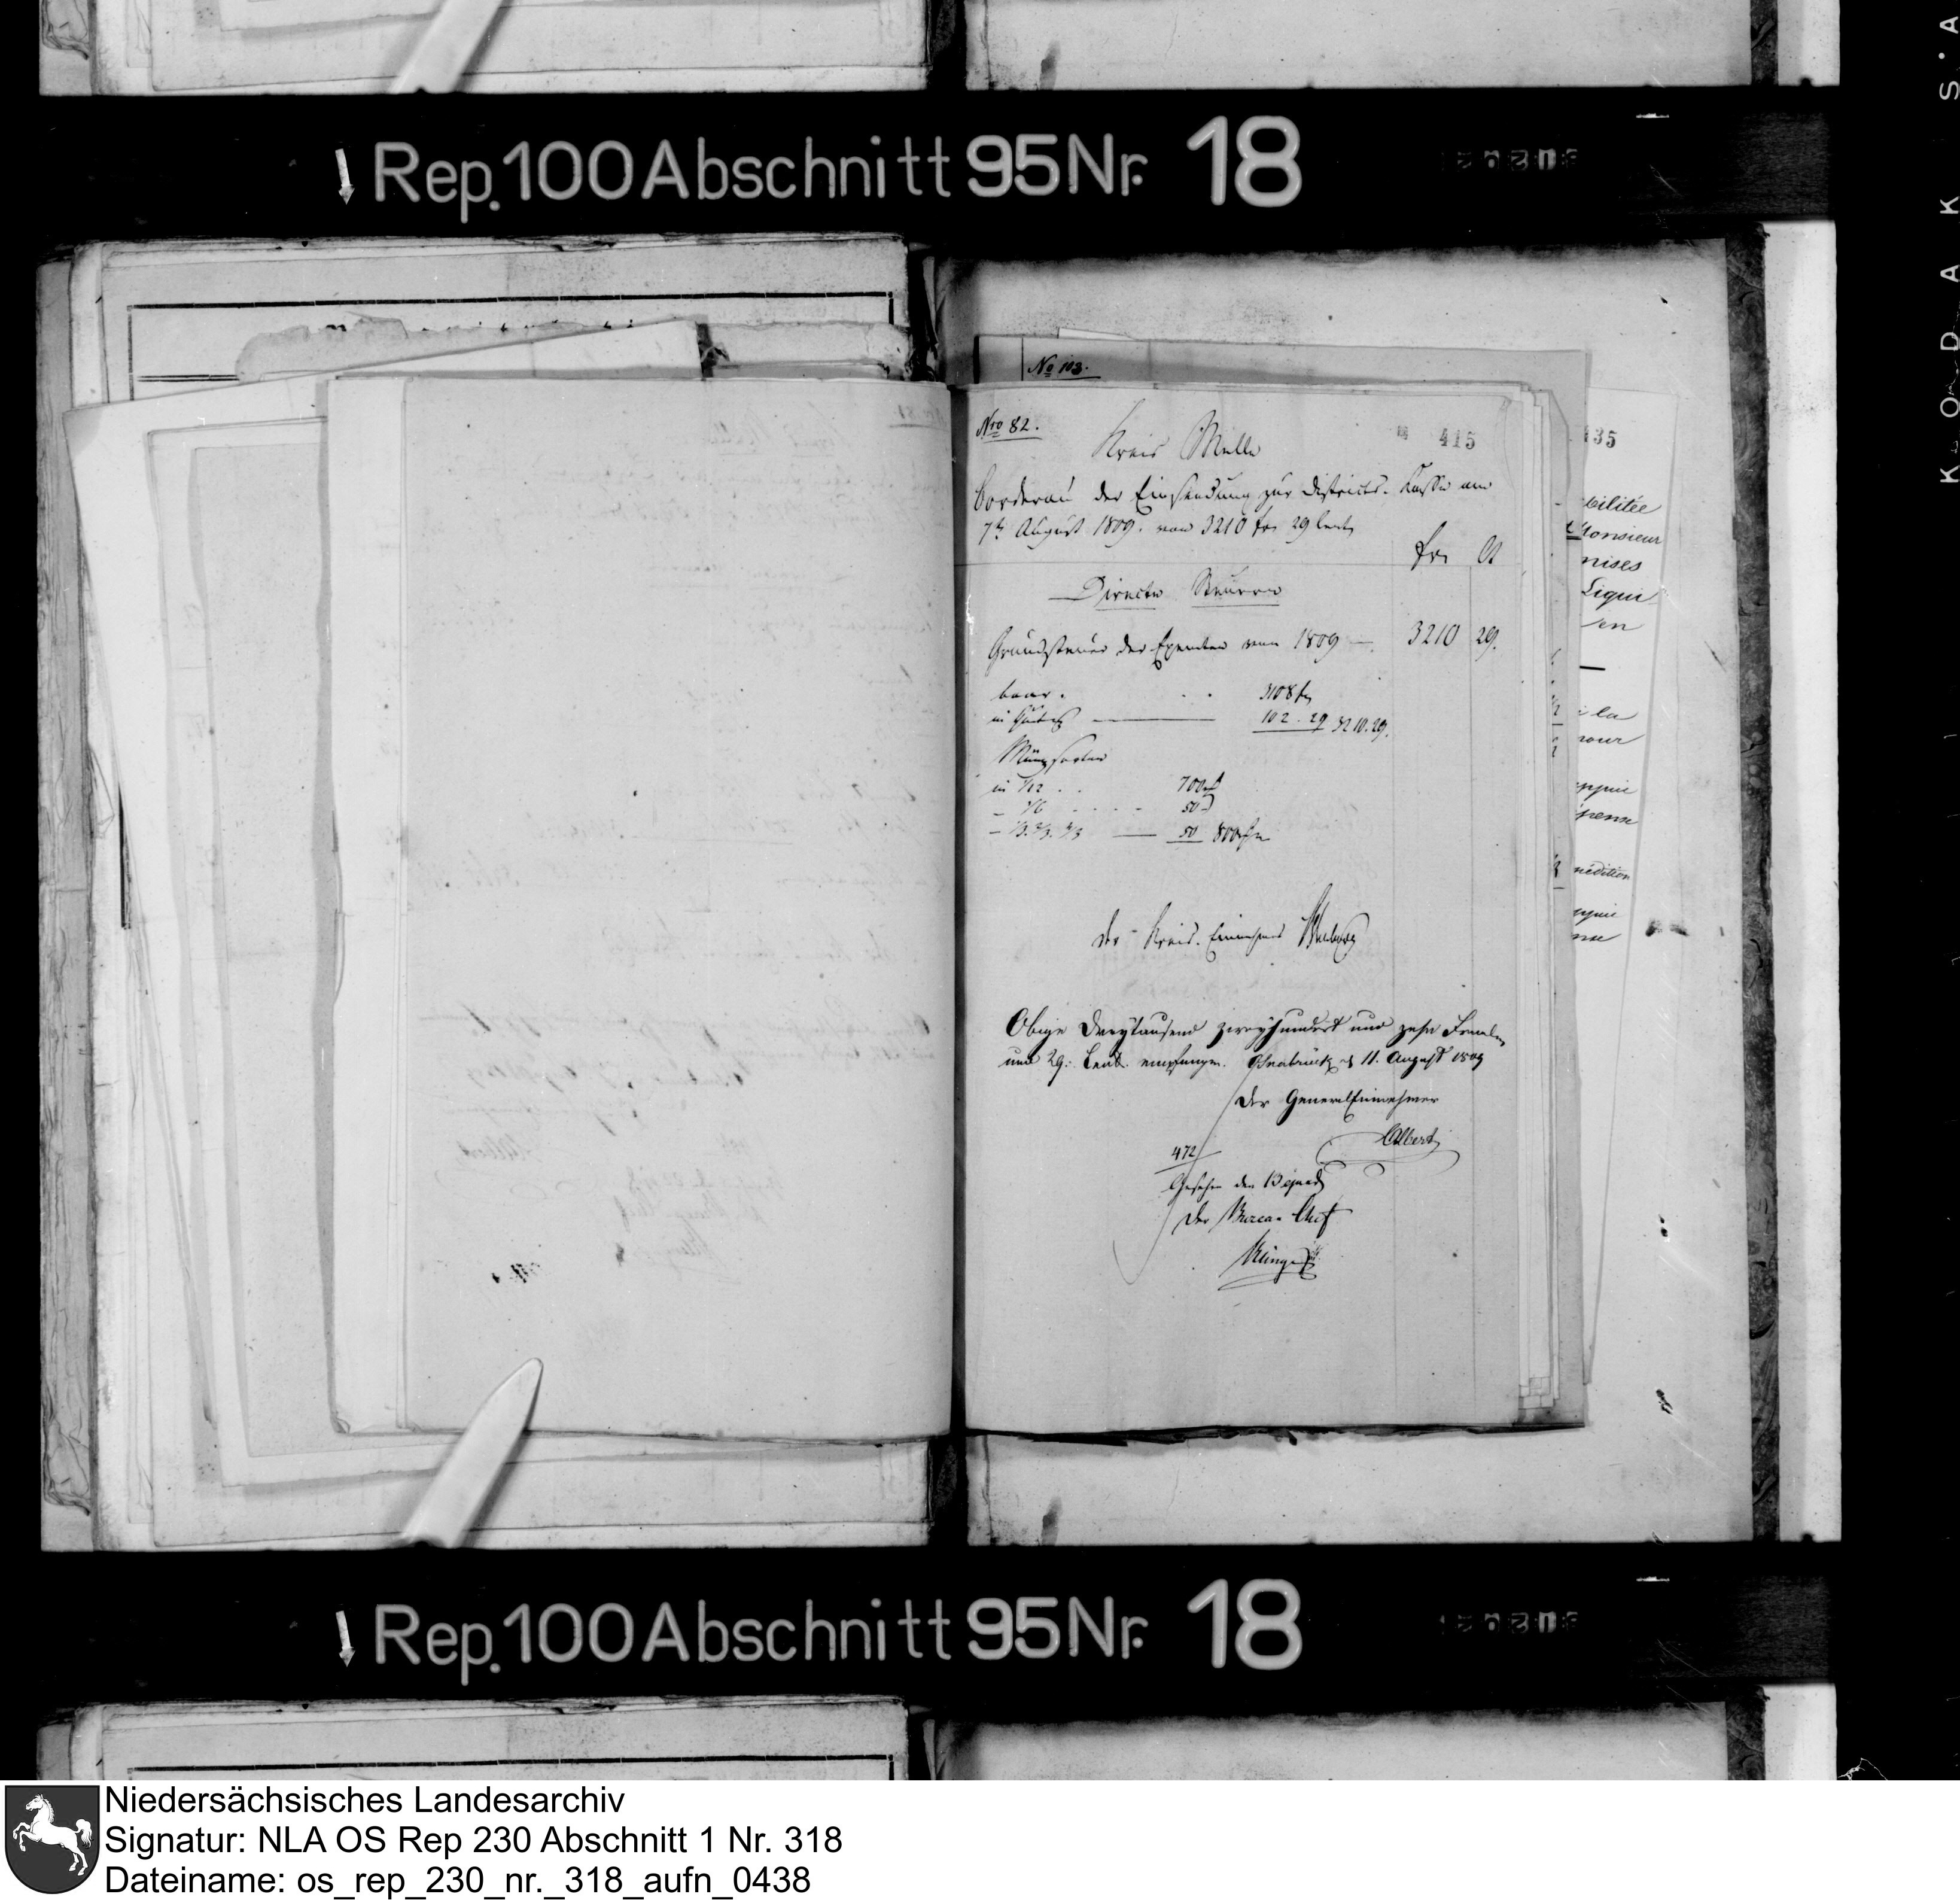 Rep. 100 Abschnitt 95 Nr. 18
No 103.
Nro 82.
415
435
Kreis Melle
Borderau der Einsendung zur Districts-Kasse am
7t August 1809. von 3210 frs 29 Cents
frs Ct
Directe Steuern
Grundsteuer der Exemten von 1809 — 3210 29.
baar . . . 3108 frs
in — 102 . 29 3210.29.
Münzsorten
in 1/12 . . 700
- 1/6 . . . . 50
- 1/3. 2/3. — 50 800
der Kreis-Einnehmer
Obige Dreytausend zweyhundert und zehn Franken
und 29. Cent. empfangen. Osnabrück d 11. August 1809
Der GeneralEinnehmer
Albert
472
Gesehen den 13 ejusd
Der Bureau Chef
bilitée
Monsieur
mises
Liqui
en
à la
pour
nédition
Rep. 100 Abschnitt 95 Nr. 18
KODAK S'A
Niedersächsisches Landesarchiv
Signatur: NLA OS Rep 230 Abschnitt 1 Nr. 318
Dateiname: os_rep_230_nr._318_aufn_0438